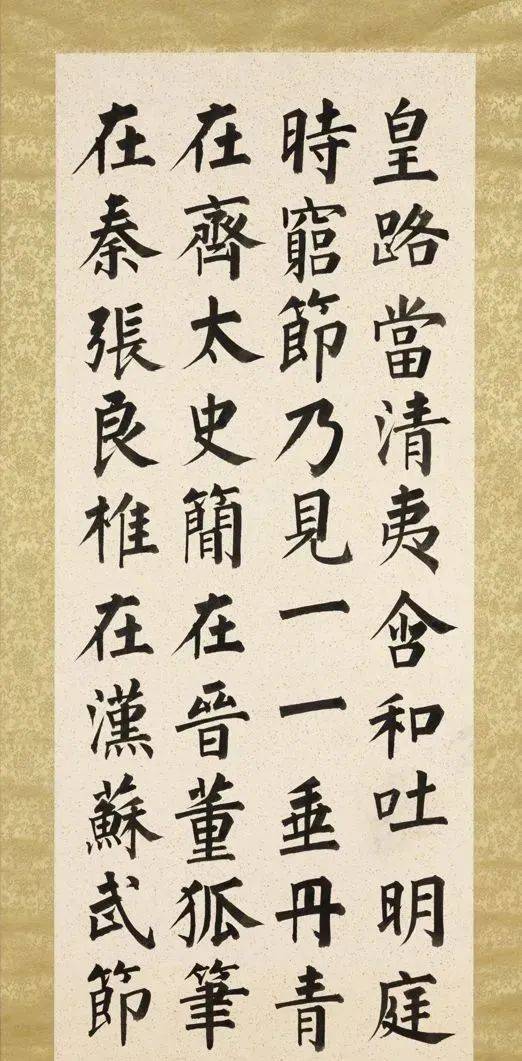 皇路當清夷含和吐明庭
時窮節乃見一一垂丹青
在齊太史簡在晉董狐筆
在秦張良椎在漢蘇武節